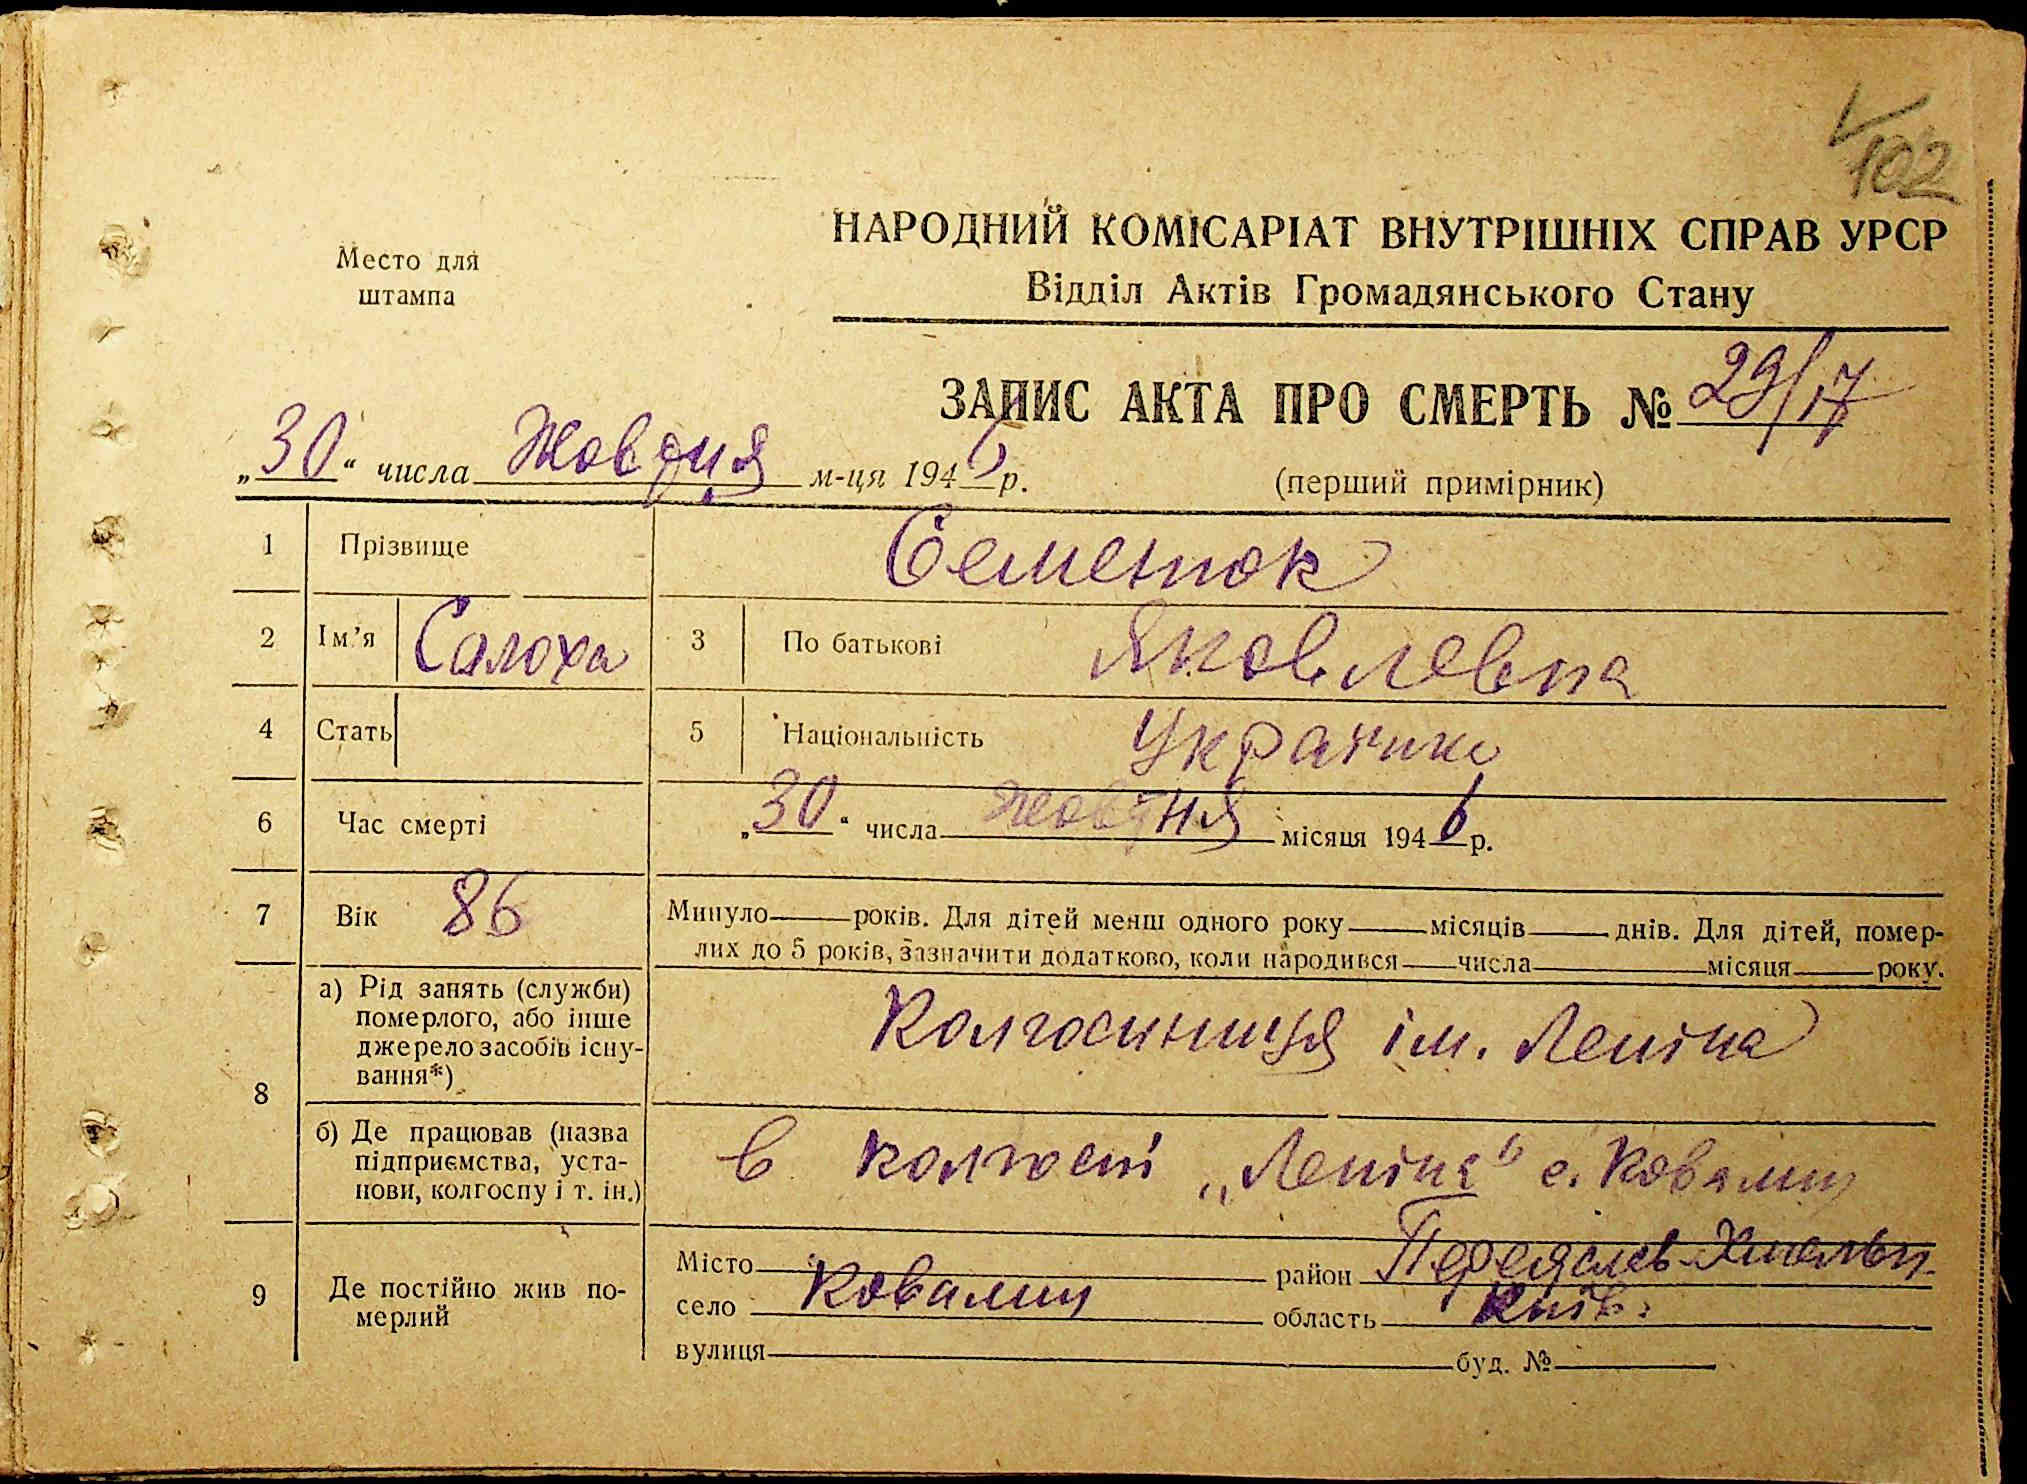 102
Место для
штампа
НАРОДНИЙ КОМІСАРІАТ ВНУТРІШНІХ СПРАВ УРСР
Відділ Актів Громадянського Стану
ЗАПИС АКТА ПРО СМЕРТЬ № 29/17
„30“ числа Жовтня м-ця 1946 р.
(перший примірник)
1 Прізвище Семенюк
2 Ім’я Солоха 3 По батькові Яковлевна
4 Стать 5 Національність Українка
6 Час смерті „30“ числа Жовтня місяця 1946 р.
7 Вік 86 Минуло років. Для дітей менш одного року місяців днів. Для дітей, помер-
лих до 5 років, зазначити додатково, коли народився числа місяця року.
8 а) Рід занять (служби)
померлого, або інше
джерело засобів існу-
вання*)
Колгоспниця ім. Леніна
б) Де працював (назва
підприємства, уста-
нови, колгоспу і т. ін.)
в колгоспі „Леніна“ с. Ковалин
9 Де постійно жив по-
мерлий
Місто район Переяслав-Хмельн.
село Ковалин область Київ.
вулиця буд. №